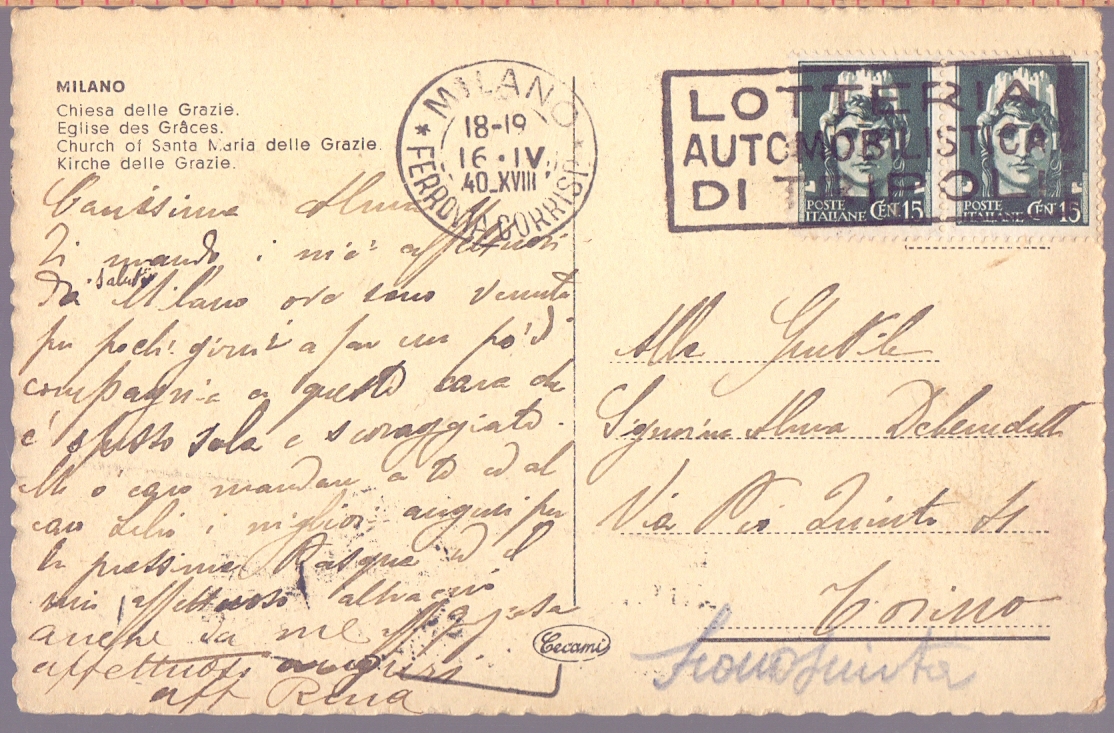 MILANO
Chiesa delle Grazie.
Eglise des Grâces.
Church of Santa Maria delle Grazie.
Kirche delle Grazie.
MILANO
18-19
16·IV.
40_XVIII
* FERROVIA CORRISP. *
LOTTERIA
AUTOMOBILISTICA
DI TRIPOLI
POSTE ITALIANE CENT 15
POSTE ITALIANE CENT 15
Carissima Alma
Ti mando i miei affettuosi
saluti
da Milano ove sono venuta
per pochi giorni a far un po' di
compagnia a questa cara che
è spesso sola e scoraggiata.
Mi è caro mandare a te ed al
caro Lelio i migliori auguri per
la prossima Pasqua ed il
mio affettuoso abbraccio
anche da me
affettuosi auguri
aff Rena
Alla Gentile
Signorina Alma Debenedetti
Via Pio Quinto
Torino
Cecami